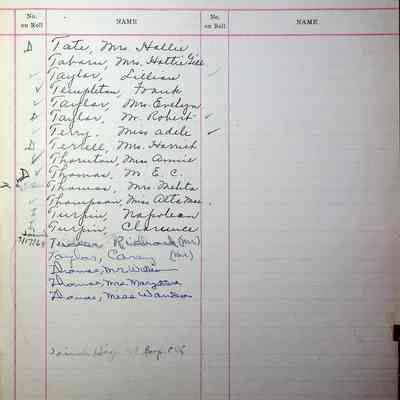 No. on Roll NAME No. on Roll NAME
D Tate, Mrs. Hallie
Tabarn, Mrs. Hattie Gill
✓ Taylor, Lillian
✓ Templeton, Frank
✓ Taylor, Mrs. Evelyn
D Taylor, Mr. Robert ✓
✓ Terry, Miss Adele ✓
D Terrell, Mrs. Harriet
✓ Thornton, Miss Annie
D Thomas, M. E. C.
Thomas, Mrs. Mehta
✓ Thompson, Miss Alta Mae
I Turpin, Napolean
I Turpin, Clarence
(Mr)
Taylor, Carey (Mr)
Thomas, Mr. William
Thomas, Mrs.
Thomas, Miss